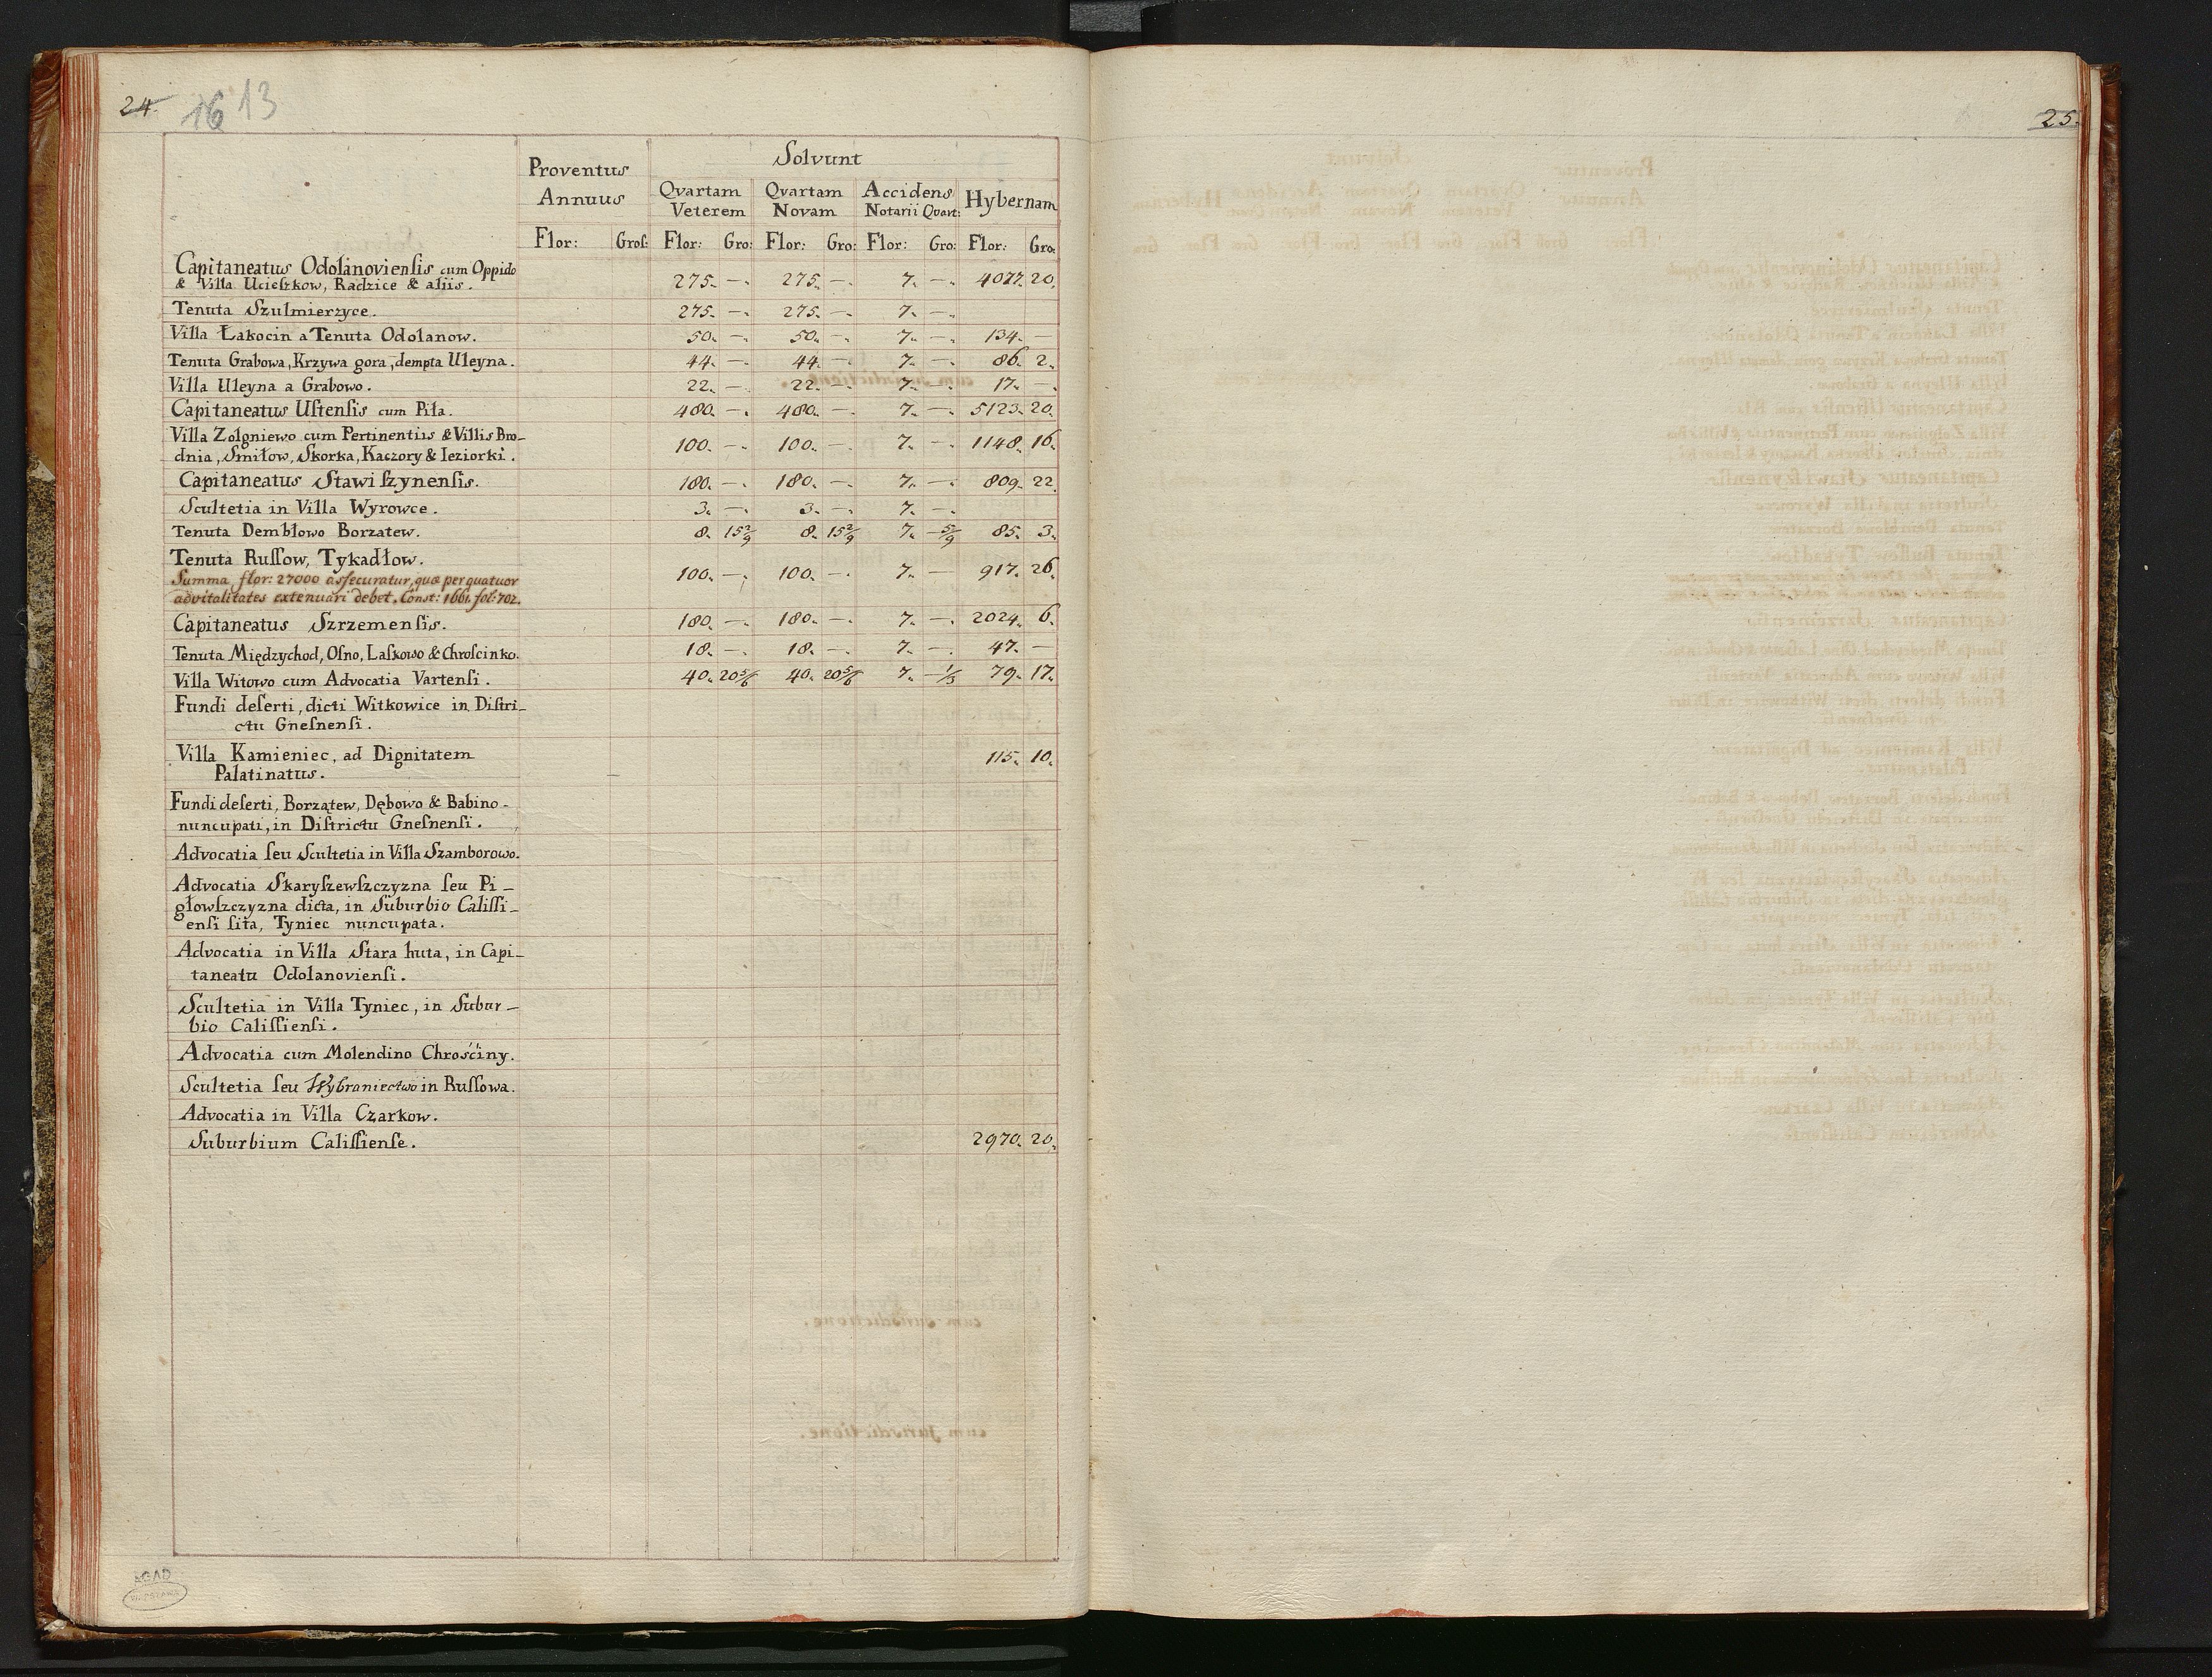 24. 16 13
25.
Proventus Annuus
Solvunt
Qvartam Veterem
Qvartam Novam
Accidens Notarii Quart:
Hybernam
Flor: Gros: Flor: Gro: Flor: Gro: Flor: Gro: Flor: Gro:
Capitaneatus Odolanovienſis cum Oppido
& Villa Ucieſzkow, Radzice & aliis. 275. —. 275. —. 7. —. 4077. 20.
Tenuta Szulmierzyce. 275. —. 275. —. 7. —.
Villa Łakocin a Tenuta Odolanow. 50. —. 50. —. 7. —. 134. —
Tenuta Grabowa, Krzywa gora, dempta Uleyna. 44. —. 44. —. 7. —. 86. 2.
Villa Uleyna a Grabowo. 22. —. 22. —. 7. —. 17. —.
Capitaneatus Uſtenſis cum Piła. 480. —. 480. —. 7. —. 5123. 20.
Villa Zolgniewo cum Pertinentiis & Villis Bro-
dnia, Smiłow, Skorka, Kaczory & Ieziorki. 100. —. 100. —. 7. —. 1148. 16.
Capitaneatus Stawiſzynenſis. 180. —. 180. —. 7. —. 809. 22.
Scultetia in Villa Wyrowce. 3. —. 3. —. 7. —.
Tenuta Dembłowo Borzatew. 8. 15 2/9 8. 15 2/9 7. — 5/9 85. 3.
Tenuta Ruſſow, Tykadłow.
Summa flor: 27000 aſſecuratur, quæ per quatuor
advitalitates extenuari debet. Const: 1661. fol: 702. 100. —. 100. —. 7. — 917. 26.
Capitaneatus Szrzemenſis. 180. —. 180. —. 7. —. 2024. 6.
Tenuta Międzychod, Oſno, Laſkowo & Chroſcinko. 18. —. 18. —. 7. —. 47. —
Villa Witowo cum Advocatia Vartenſi. 40. 20 5/6 40. 20 5/6 7. — 1/3 79. 17.
Fundi deſerti, dicti Witkowice in Diſtri-
ctu Gneſnenſi.
Villa Kamieniec, ad Dignitatem
Palatinatus. 115. 10.
Fundi deſerti, Borzątew, Dębowo & Babino-
nuncupati, in Diſtrictu Gneſnenſi.
Advocatia ſeu Scultetia in Villa Szamborowo.
Advocatia Skaryſzewſzczyzna ſeu Pi-
głowſzczyzna dicta, in Suburbio Caliſſi-
enſi ſita, Tyniec nuncupata.
Advocatia in Villa Stara huta, in Capi-
taneatu Odolanovienſi.
Scultetia in Villa Tyniec, in Subur-
bio Caliſſienſi.
Advocatia cum Molendino Chrośćiny.
Scultetia ſeu Wybraniectwo in Ruſſowa.
Advocatia in Villa Czarkow.
Suburbium Caliſſienſe. 2970. 20.
AGAD